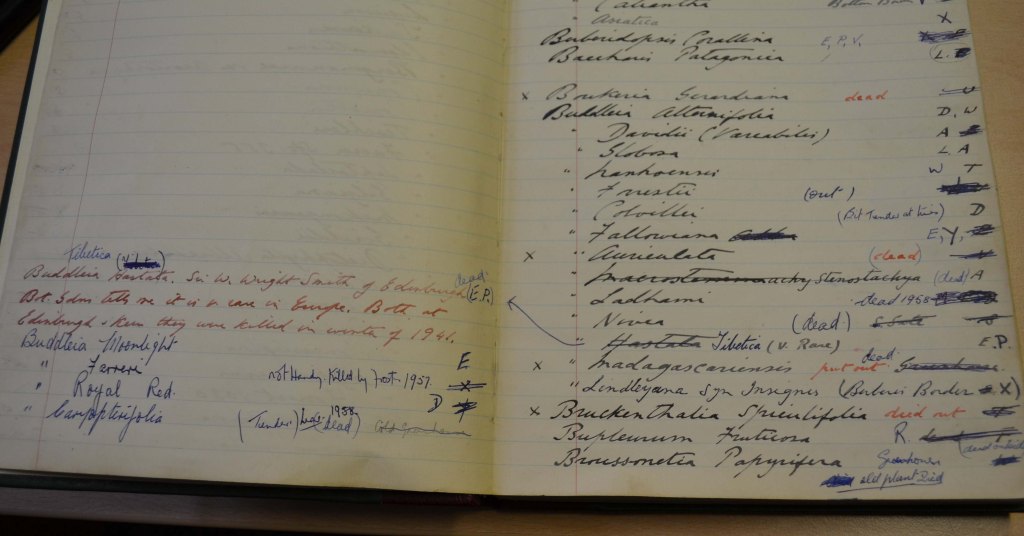 Tibetica
Buddleia Hastata. Sir W. Wright Smith of Edinburgh dead (E.P.)
Bt. Gdns tells me it is v. rare in Europe. Both at
Edinburgh & Kew they were killed in winter of 1941.
Buddleia Moonlight
" Farreri E
" Royal Red. not Hardy. Killed by Frost. 1957.
" Caryopterifolia (Tender) dead) 1958 D
Asiatica X
Berberidopsis Corallina E, P, V.
Baccharis Patagonica L.
x Boukeria Gerardiana dead
Buddleia Alternifolia D, W
" Davidii (Variabilis) A
" Globosa L. A
" W T
" Forrestii (out)
" Colvillei (Bit Tender at times) D
" Fallowiana E, Y,
x " Auriculata (dead)
" Stenostachya (dead) A
" Ladhami dead 1958
" Nivea (dead)
" Hastata Tibetica (V. Rare) E.P.
x " Madagascariensis put out. dead.
" Lindleyana Syn Insignis (Berberis Border X)
x Bruckenthalia Spiculifolia died out
Bupleurum Fruticosa R.
Broussonetia Papyrifera
old plant Died